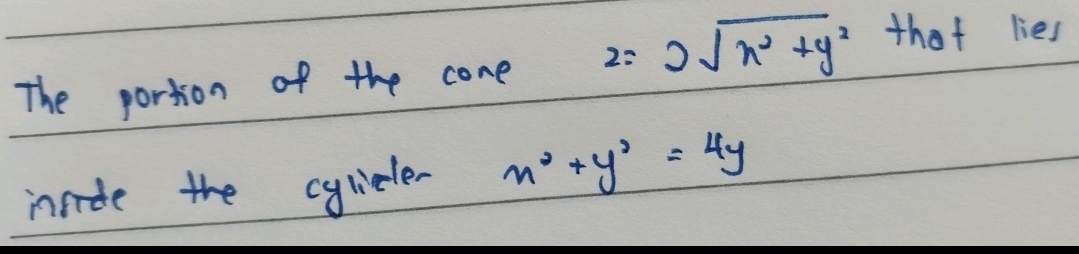 The portion of the cone z = 2√x² + y² that lies
inside the cylinder x² + y² = 4y